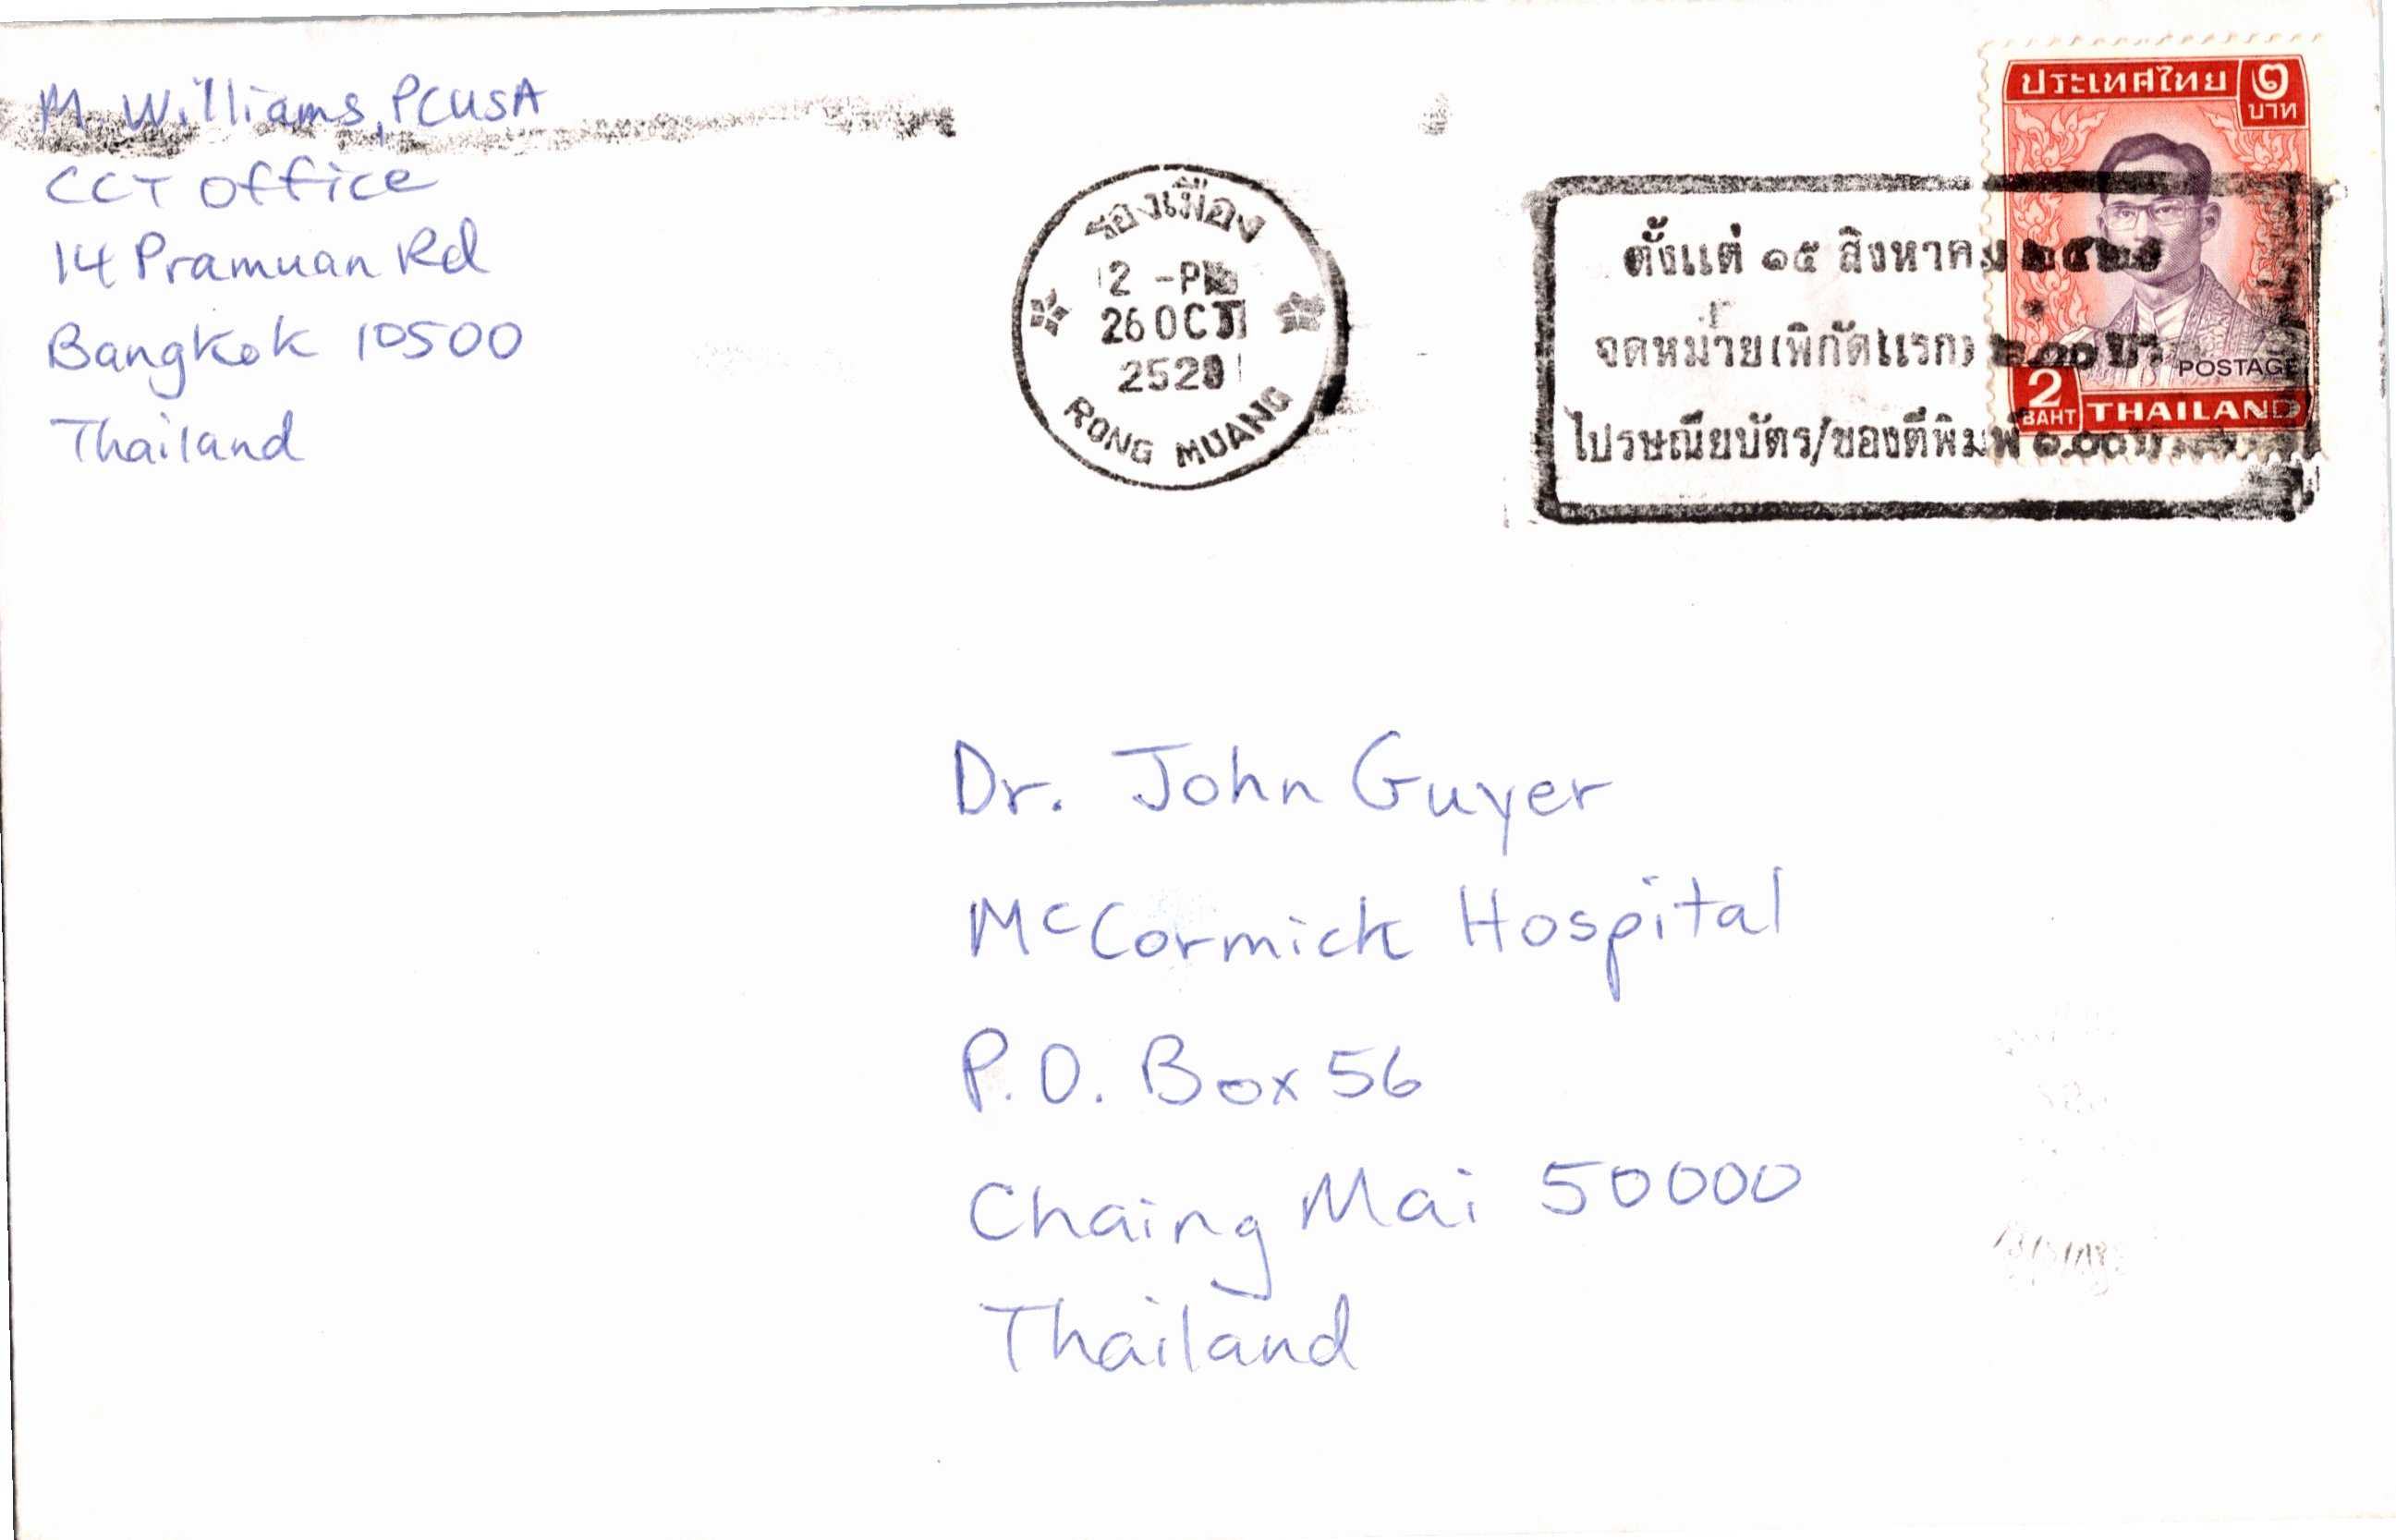 M. Williams, PCUSA
CCT Office
14 Pramuan Rd
Bangkok 10500
Thailand
รองเมือง
2 -PM
26 OCT
2529
RONG MUANG
ตั้งแต่ ๑๕ สิงหาคม
จดหมาย(พิกัดแรก) ๒.๐๐
ไปรษณียบัตร/ของตีพิมพ์ ๑.๐๐
ประเทศไทย ๒
บาท
POSTAGE
2
BAHT THAILAND
Dr. John Guyer
McCormick Hospital
P.O. Box 56
Chaing Mai 50000
Thailand